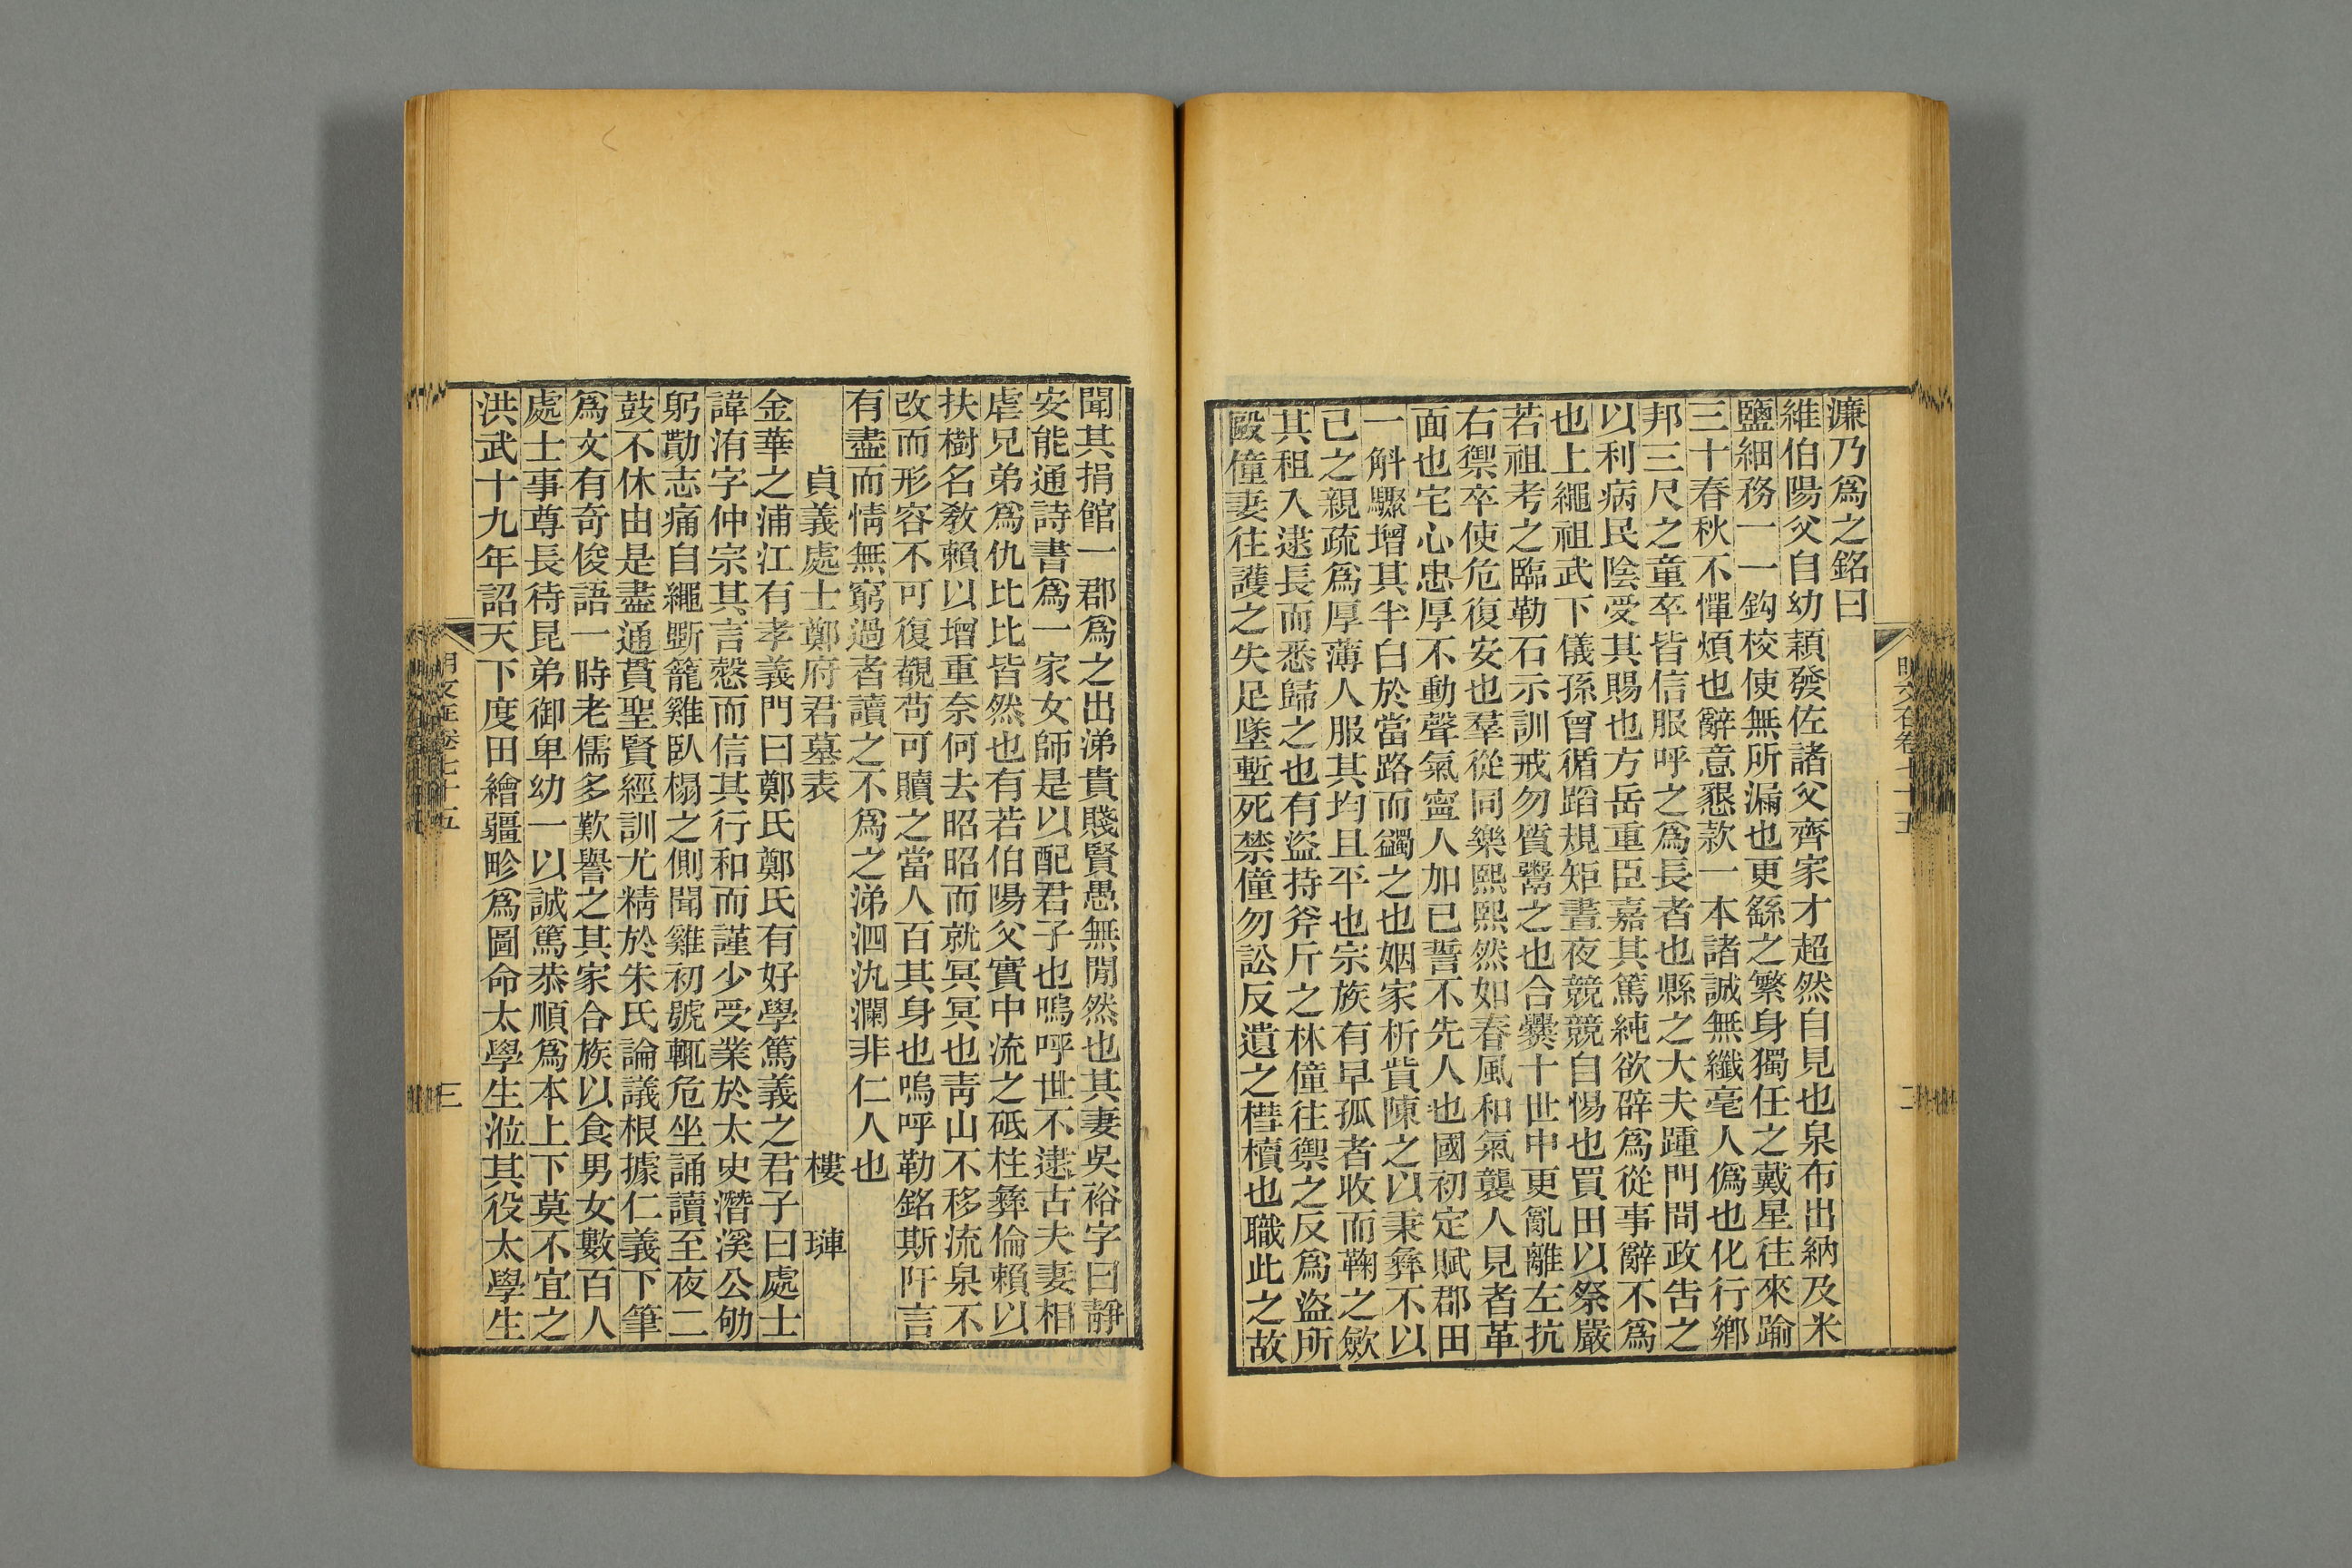 濂乃爲之銘曰
維伯陽父自幼穎發佐諸父齊家才超然自見也泉布出納及米
鹽細務一一鈎校使無所漏也更繇之繁身獨任之戴星往來踰
三十春秋不憚煩也辭意懇款一本諸誠無纖毫人僞也化行鄉
邦三尺之童卒皆信服呼之爲長者也縣之大夫踵門問政告之
以利病民陰受其賜也方岳重臣嘉其篤純欲辟爲從事辭不爲
也上繩祖武下儀孫曾循蹈規矩晝夜競競自惕也買田以祭嚴
若祖考之臨勒石示訓戒勿質鬻之也合爨十世中更亂離左抗
右禦卒使危復安也羣從同樂熙熙然如春風和氣襲人見者革
面也宅心忠厚不動聲氣寧人加已誓不先人也國初定賦郡田
一斛驟增其半白於當路而蠲之也姻家析貲陳之以秉彝不以
己之親疏爲厚薄人服其均且平也宗族有早孤者收而鞠之斂
其租入逮長而悉歸之也有盜持斧斤之林僮往禦之反爲盜所
毆僮妻往護之失足墜塹死禁僮勿訟反遺之槥櫝也職此之故
明文在卷七十五
二
聞其捐館一郡爲之出涕貴賤賢愚無閒然也其妻吳裕字曰靜
安能通詩書爲一家女師是以配君子也嗚呼世不逮古夫妻相
虐兄弟爲仇比比皆然也有若伯陽父實中流之砥柱彝倫賴以
扶樹名敎賴以增重奈何去昭昭而就冥冥也靑山不移流泉不
改而形容不可復覩苟可贖之當人百其身也嗚呼勒銘斯阡言
有盡而情無窮過者讀之不爲之涕泗汍瀾非仁人也
貞義處士鄭府君墓表 樓 璉
金華之浦江有孝義門曰鄭氏鄭氏有好學篤義之君子曰處士
諱洧字仲宗其言慤而信其行和而謹少受業於太史潛溪公劬
躬勩志痛自繩斲籠雞臥榻之側聞雞初號輒危坐誦讀至夜二
鼓不休由是盡通貫聖賢經訓尤精於朱氏論議根據仁義下筆
爲文有奇俊語一時老儒多歎譽之其家合族以食男女數百人
處士事尊長待昆弟御卑幼一以誠篤恭順爲本上下莫不宜之
洪武十九年詔天下度田繪疆畛爲圖命太學生涖其役太學生
明文在卷七十五
三